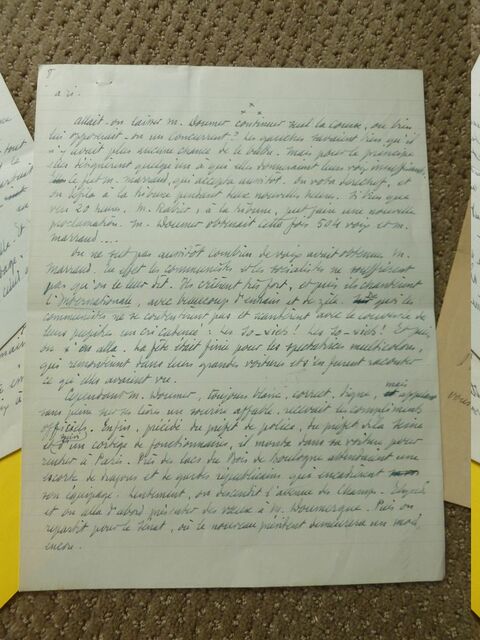 8
à ri.
Allait-on laisser M. Doumer continuer seul la course, ou bien
lui opposerait-on un concurrent? Les gauches savaient bien qu'il
n'y avait plus aucune chance de le battre. Mais pour le principe
elles désignèrent quelqu'un à qui elles donneraient leurs voix
Ce fut M. Marraud, qui accepta aussitôt. On vota derechef, et
on défila à la tribune pendant deux nouvelles heures. Si bien que
vers 20 heures, M. Rabier, à la tribune, put faire une nouvelle
proclamation. M. Doumer obtenait cette fois 504 voix et M.
Marraud....
On ne sut pas aussitôt combien de voix avait obtenues M.
Marraud. En effet les communistes et les socialistes ne souffrirent
pas qu'on le leur dît. Ils crièrent très fort, et puis ils chantèrent
l'Internationale, avec beaucoup d'entrain et de zèle. puis les
communistes ne se continrent pas et scandèrent avec le couvercle de
leurs pupitres un cri cadencé: Les So-viets! Les So-viets! Et puis,
on s'en alla. La fête était finie pour les spectatrices multicolores,
qui remontèrent dans leurs grandes voitures et s'en furent raconter
ce qu'elles avaient vu.
Cependant M. Doumer, toujours blanc, correct, digne, mais
sans peine sur ses lèvres un sourire affable, recevait les compliments
officiels. Enfin, précédé du préfet de police, du préfet de la Seine
et suivi d'un cortège de fonctionnaires, il monta dans sa voiture pour
rentrer à Paris. Près des lacs du Bois de Boulogne attendaient une
escorte de dragons et de gardes républicains qui encadrèrent
son équipage. Lentement, on descendit l'avenue des Champs-Elysées
et on alla d'abord présenter des vœux à M. Doumergue. Puis on
repartit pour le Sénat, où le nouveau président demeurera un mois
encore.